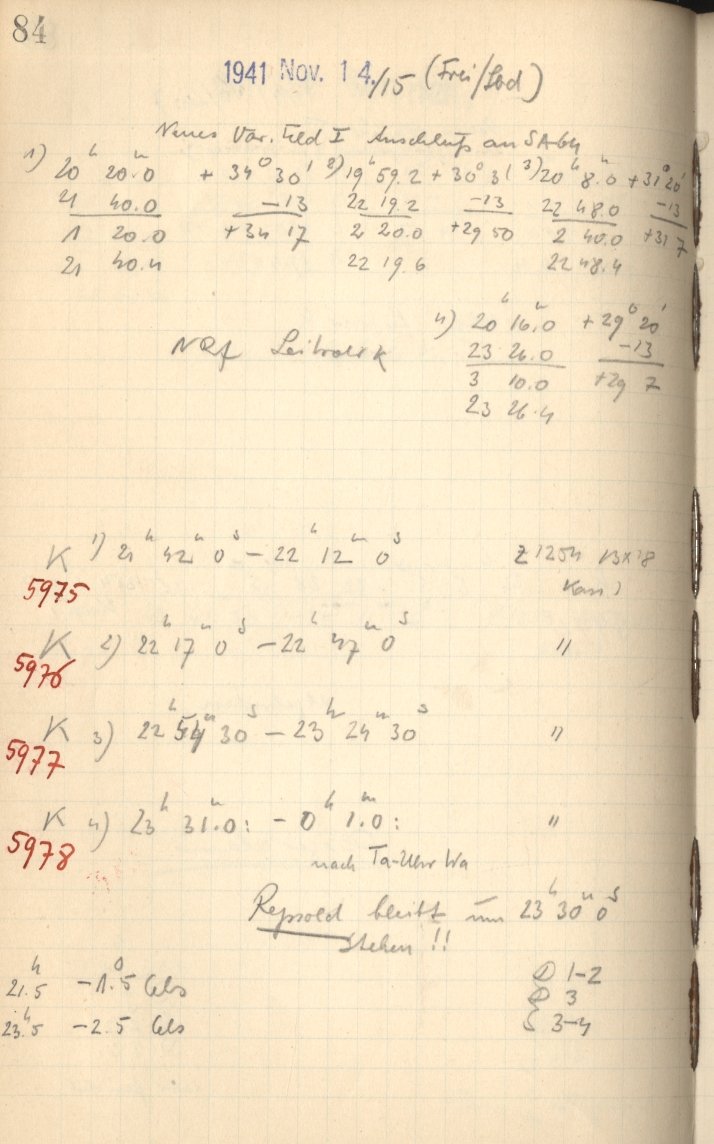 84
1941 Nov. 14./15 (Frei/Sbd)
Neues Var. Feld I Anschluß an SA64
1) 20ʰ 20ᵐ.0 + 34° 30' 2) 19ʰ 59.2 + 30° 31 3) 20ʰ 8ᵐ.0 + 31° 20'
21 40.0 −13 22 19.2 −13 22 48.0 −13
1 20.0 +34 17 2 20.0 +29 50 2 40.0 +31 7
21 40.4 22 19.6 22 48.4
4) 20ʰ 16ᵐ.0 + 29° 20'
23 26.0 −13
3 10.0 +29 7
23 26.4
K 1) 21ʰ 42ᵐ 0ˢ − 22ʰ 12ᵐ 0ˢ Z 1254 13×18
5975
K 2) 22ʰ 17ᵐ 0ˢ − 22ʰ 47ᵐ 0ˢ "
5976
K 3) 22ʰ 54ᵐ 30ˢ − 23ʰ 24ᵐ 30ˢ "
5977
K 4) 23ʰ 31ᵐ.0: − 0ʰ 1ᵐ.0: "
5978
nach Ta-Uhr Wa
Repsold bleibt um 23ʰ 30ᵐ 0ˢ
stehen !!
21ʰ.5 −1°.5 Cels 1-2
23ʰ.5 −2.5 Cels 3
3-4